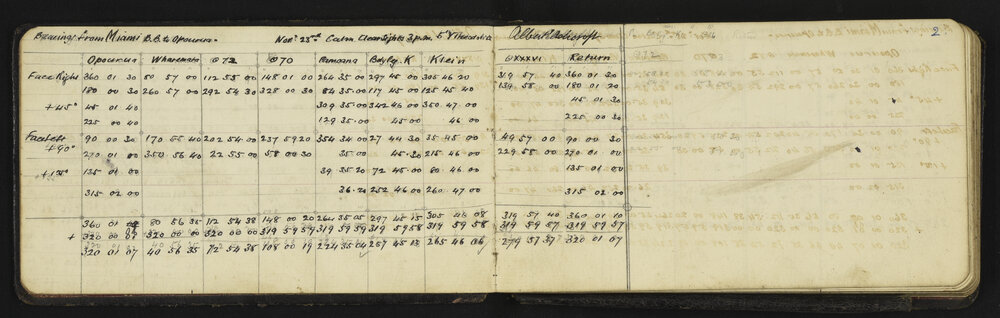 Bearings from Miami B.B. to Opourua. Nov. 23rd Calm Clear Lights 3 p.m. 5" Theodolite
Opourua Wharemata @72 @70 Ramoana Bdylg. K Klein LXXXVI Return
Face Right 360 01 30 80 57 00 112 55 00 148 01 00 264 35 00 297 45 00 305 46 20 319 57 40 360 01 30
180 00 30 260 57 00 292 54 30 328 00 30 84 35 00 117 45 00 125 45 40 139 58 00 180 01 20
+45° 45 01 40 309 35 00 342 46 00 350 47 00 45 01 30
225 00 40 129 35 00 46 00 225 00 30
Face Left +90° 90 00 30 170 56 40 202 54 00 237 59 20 354 34 00 27 44 30 35 45 00 49 57 00 90 00 30
270 01 00 350 56 40 22 55 00 58 00 30 35 00 45 30 215 46 00 229 58 00 270 01 00
+135° 135 01 00 39 35 20 72 45 00 80 46 00 135 01 00
315 02 00 36 20 252 46 00 260 47 00 315 02 00
360 01 80 56 35 112 54 38 148 00 20 264 35 05 297 45 15 305 46 08 319 57 40 360 01 10
+ 320 00 320 00 00 320 00 00 319 59 59 319 59 59 319 59 58 319 59 58 319 59 57 319 59 57
320 01 07 40 56 35 72 54 38 108 00 19 224 35 04 257 45 13 265 46 06 279 57 37 320 01 07
2